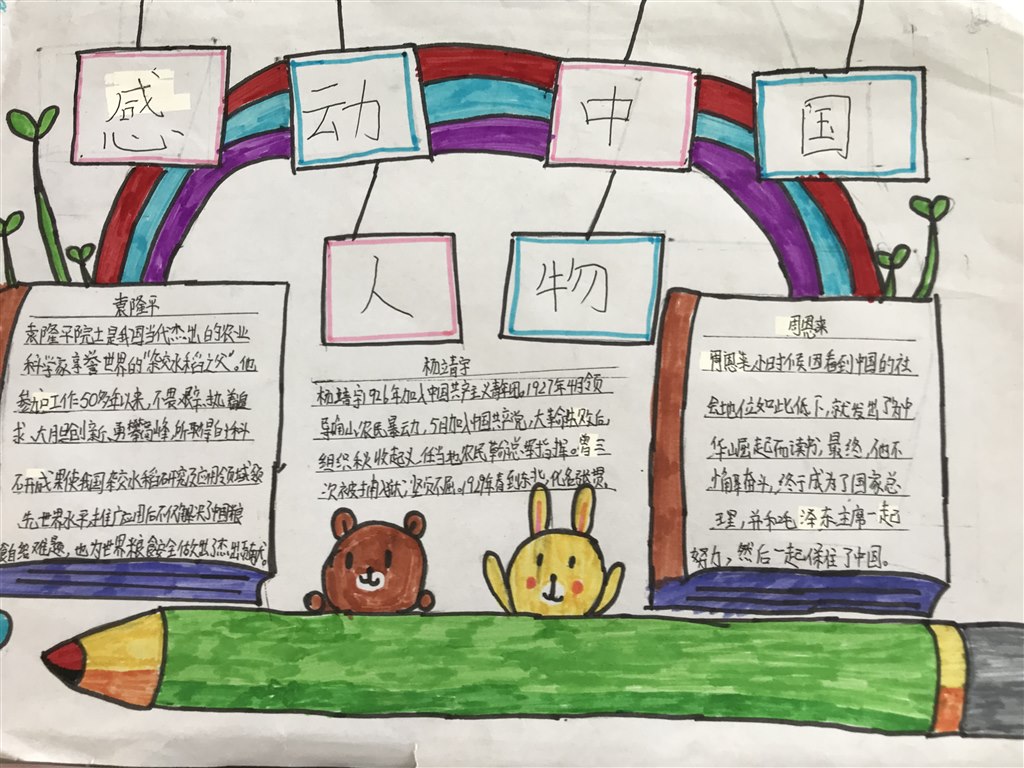 感动中国
人物
袁隆平
袁隆平院士是我国当代杰出的农业
科学家享誉世界的“杂交水稻之父”。他
参加工作50多年以来,不畏艰辛、执着追
求、大胆创新、勇攀高峰,所取得的科
研成果使我国杂交水稻研究及应用领域领
先世界水平推广应用后不仅解决了中国粮
食自给难题，也为世界粮食安全做出了杰出贡献。
杨靖宇
杨靖宇1926年加入中国共产主义青年团。1927年4月领
导确山农民暴动，5月加入中国共产党，大革命失败后，
组织秋收起义，任当地农民革命总指挥。曾三
次被捕入狱，坚贞不屈。1929年春到东北，化名张贯一
周恩来
周恩来小时候因看到中国的社
会地位如此低下,就发出“为中
华崛起而读书，最终，他不
懈奋斗，终于成为了国家总
理，并和毛泽东主席一起
努力，然后一起保住了中国。